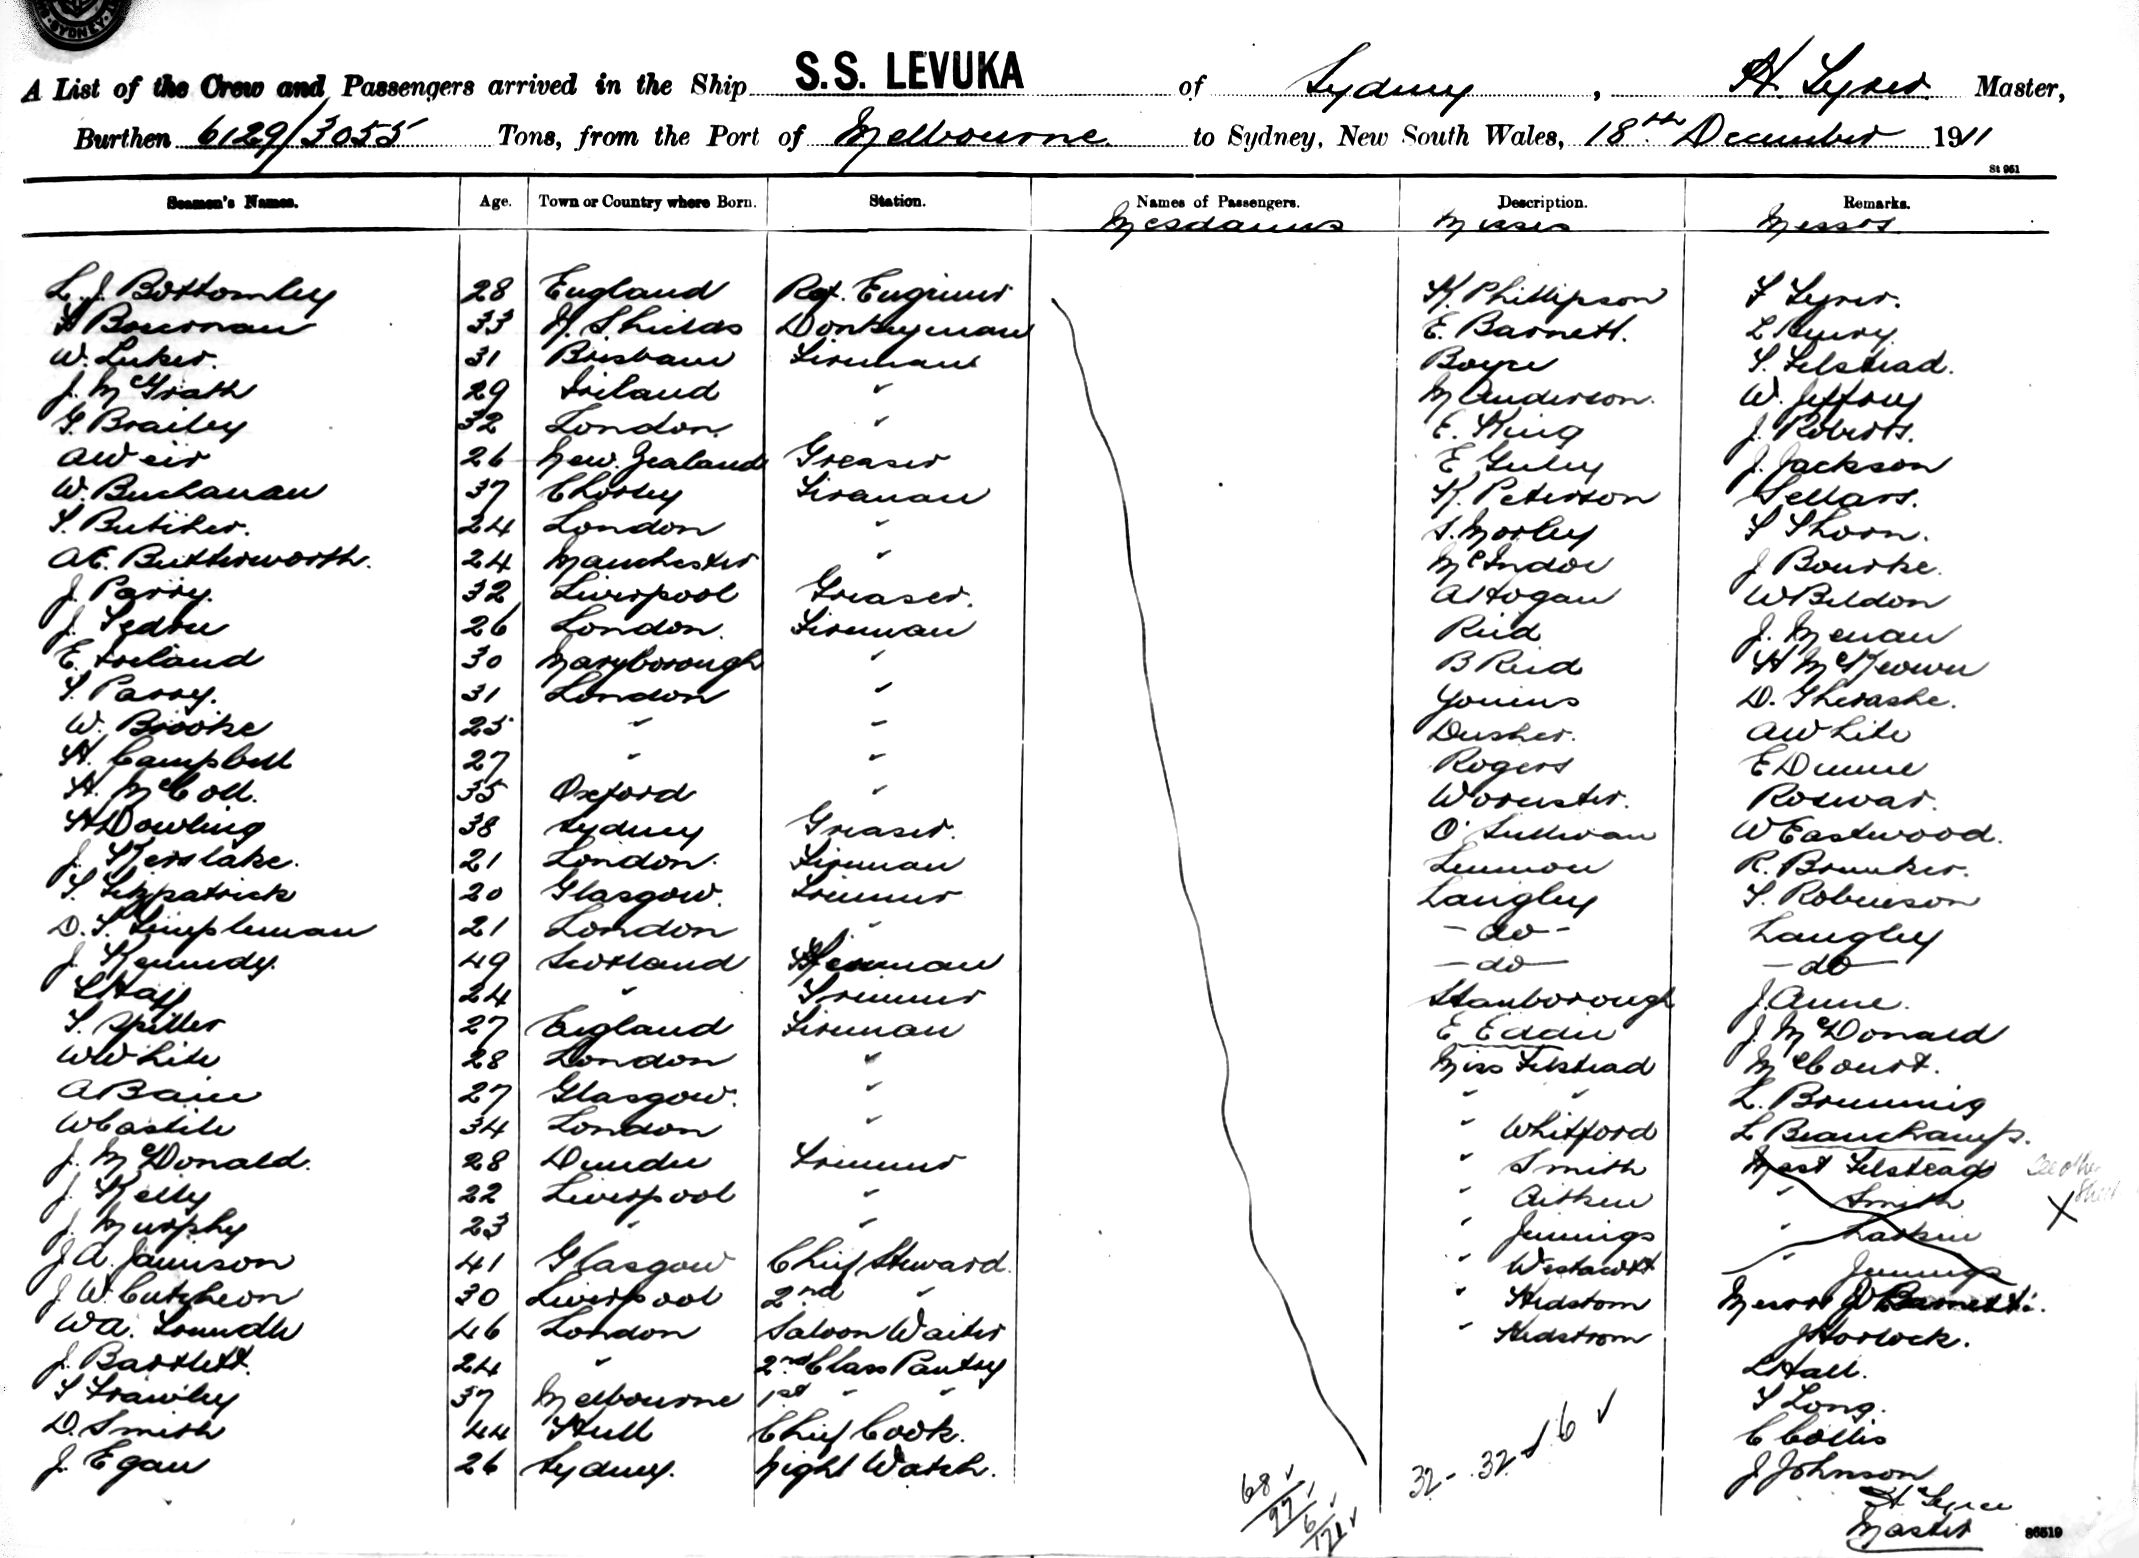 SYDNEY
A List of the Crew and Passengers arrived in the Ship S.S. LEVUKA of Sydney, H. Syrer Master,
Burthen 6129/3055 Tons, from the Port of Melbourne to Sydney, New South Wales, 18th December 1911
St 951
Seamen's Names. Age. Town or Country where Born. Station. Names of Passengers. Description. Remarks.
Mesdames Misses Messrs.
L. J. Bottomley 28 England Ref. Engineer K. Phillipson F
33 N. Shields Donkeyman E. Barnett. L Henry
W. Luker. 31 Brisbane Fireman Boyce Felstead.
J. McGrath 29 Ireland " M Anderson. W. Jeffrey
G. Brailey 32 London. " E. King J. Roberts.
A Weir 26 New Zealand Greaser E J. Jackson
W. Buchanan 37 Chorley Fireman K. Peterson Sellars.
T. Butcher. 24 London " S. Morley T Thorn.
A E. Butterworth. 24 Manchester " McIndoe J Bourke.
J. Parry. 32 Liverpool Greaser. A Hogan W Beldon
J. 26 London. Fireman Reid J.
E. Ireland 30 Maryborough " B Reid H McKeown
T. Parry. 31 London " D.
W. Brooke 25 " " Dusher. A White
H. Campbell 27 " " Rogers E Dunne
H. McColl. 35 Oxford " Worcester. Rosewar.
H Dowling 38 Sydney Greaser. O'Sullivan W Eastwood.
J. Kerslake. 21 London. Fireman Lennon R. Brunker.
T. Fitzpatrick 20 Glasgow. Trimmer Langley T. Robinson
D. T. Templeman 21 London " - do - Langley
J. Kennedy. 49 Scotland Fireman - do - - do -
24 " Trimmer Stanborough J. Anne.
T. Spiller 27 England Fireman E Eddie J. McDonald
W White 28 London " Miss Felstead McCourt.
A Bain 27 Glasgow. " " " L. Brunning
W Castile 34 London " " Whitford L Beauchamp.
J. McDonald. 28 Dundee Trimmer " Smith Mast Felstead see other sheet
J. Kelly 22 Liverpool " " Aitken " Smith X
J. Murphy 23 " " " Jennings " Larkin
J. A. Jamison 41 Glasgow Chief Steward. " Westacott " Jennings
J. W. Cutcheon 30 Liverpool 2nd " " Hedstrom Messrs J Barnett.
W A. Trundle 46 London Saloon Waiter " Hedstrom J Horlock.
J. Bartlett. 24 " 2nd Class Pantry L Hall.
T Frawley 37 Melbourne 1st " " T Long.
D. Smith 44 Hull Chief Cook. C Collis
J. Egan 26 Sydney. Night Watch. J Johnson
32 - 32 6
68
97
6
171
H Syrer
Master
86519